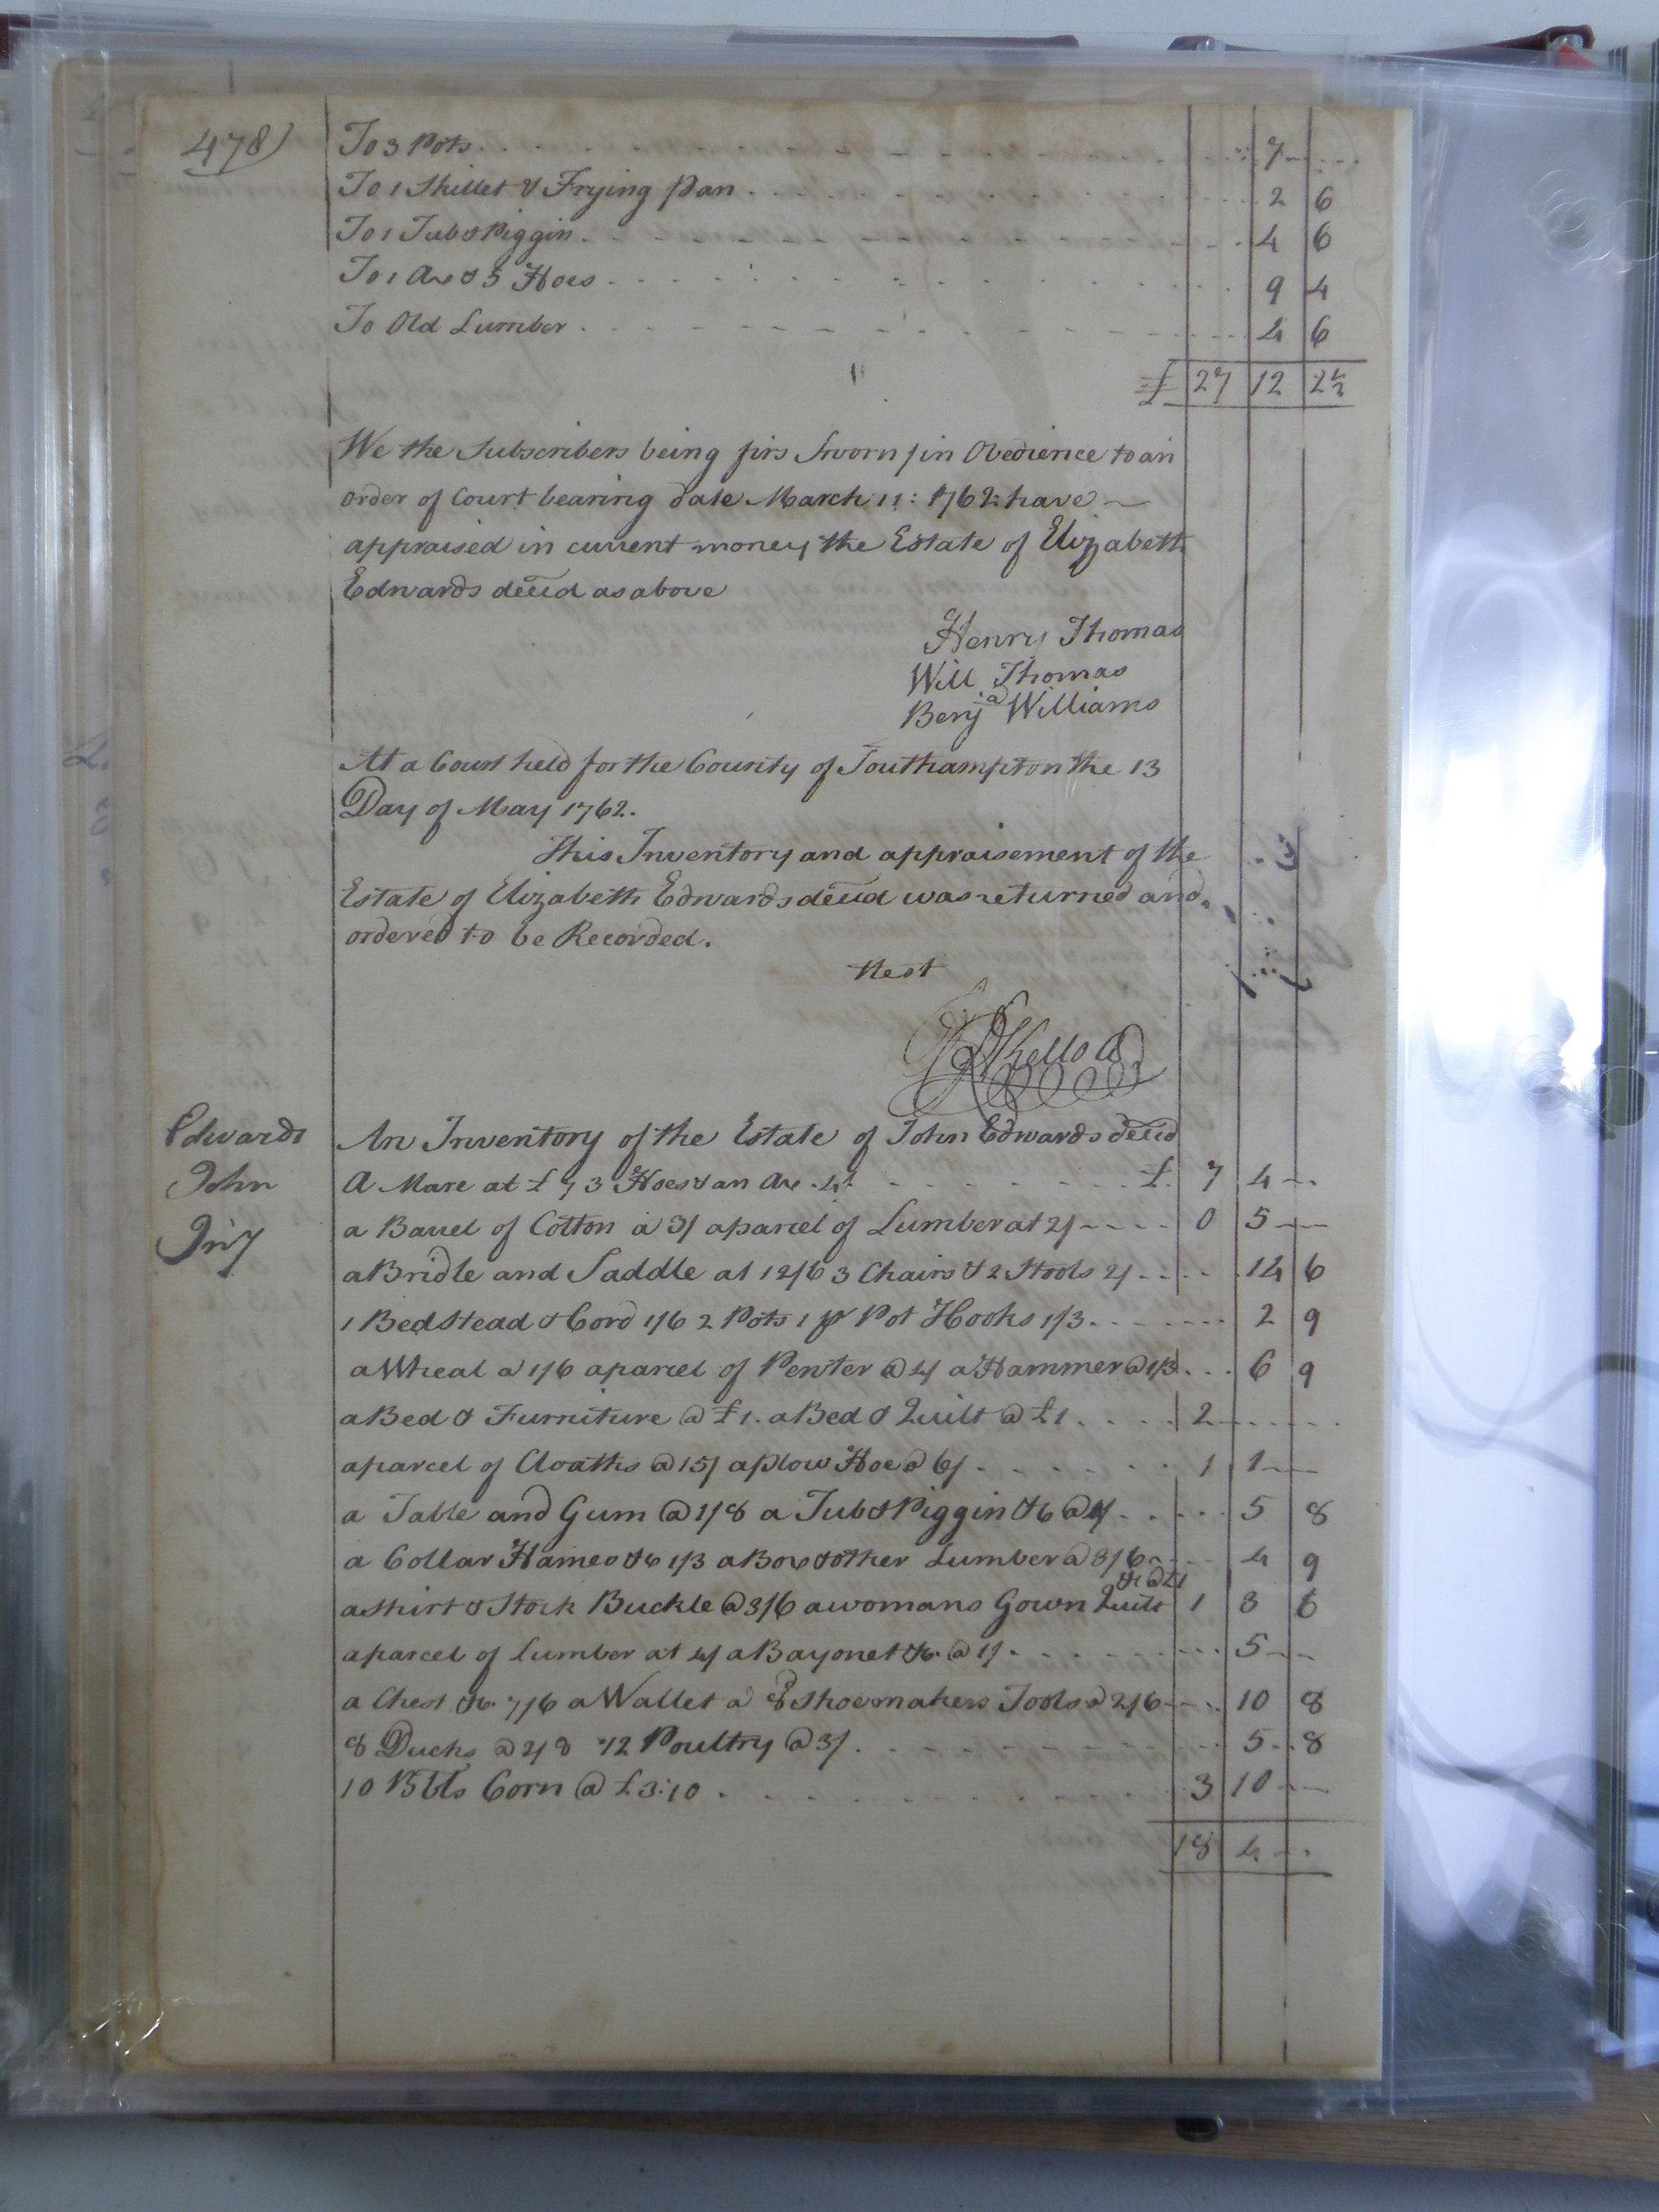 478)
To 3 Pots 7
To 1 Skillet & Frying Pan 2 6
To 1 Tub & Piggin 4 6
To 1 Ax & 5 Hoes 9 4
To Old Lumber 4 6
£ 27 12 2½
We the Subscribers being firs Sworn in Obedience to an
order of Court bearing date March 11: 1762: have
appraised in current money the Estate of Elizabeth
Edwards deced as above
Henry Thomas
Will Thomas
Benjᵃ Williams
At a Court held for the County of Southampton the 13
Day of May 1762.
This Inventory and appraisement of the
Estate of Elizabeth Edwards deced was returned and
ordered to be Recorded.
Attest
RKello Cl
Edwards
John
Invy
An Inventory of the Estate of John Edwards deced
A Mare at £7 3 Hoes & an Ax 4/ £ 7 4
a Barrel of Cotton a 3/ a parcel of Lumber at 2/ 0 5
a Bridle and Saddle at 12/6 3 Chairs & 2 Stools 2/ 14 6
1 Bed Stead & Cord 1/6 2 Pots 1 pr Pot Hooks 1/3 2 9
a Wheal a 1/6 a parcel of Pewter @ 4/ a Hammer @ 1/3 6 9
a Bed & Furniture @ £1. a Bed & Quilt @ £1 2
a parcel of Cloaths @ 15/ a plow Hoe @ 6/ 1 1
a Table and Gum @ 1/8 a Tub & Piggin &c @ 4/ 5 8
a Collar Hames &c 1/3 a Box & other Lumber @ 3/6 4 9
a Shirt & Stock Buckle @ 3/6 a womans Gown Quilt &c @ £1 1 3 6
a parcel of Lumber at 4/ a Bayonet &c. @ 1/ 5
a Chest &c. 7/6 a Wallet a 8 Shoemakers Tools @ 2/6 10 8
8 Ducks @ 2/8 12 Poultry @ 3/ 5 8
10 Bbls Corn @ £3:10 3 10
18 4